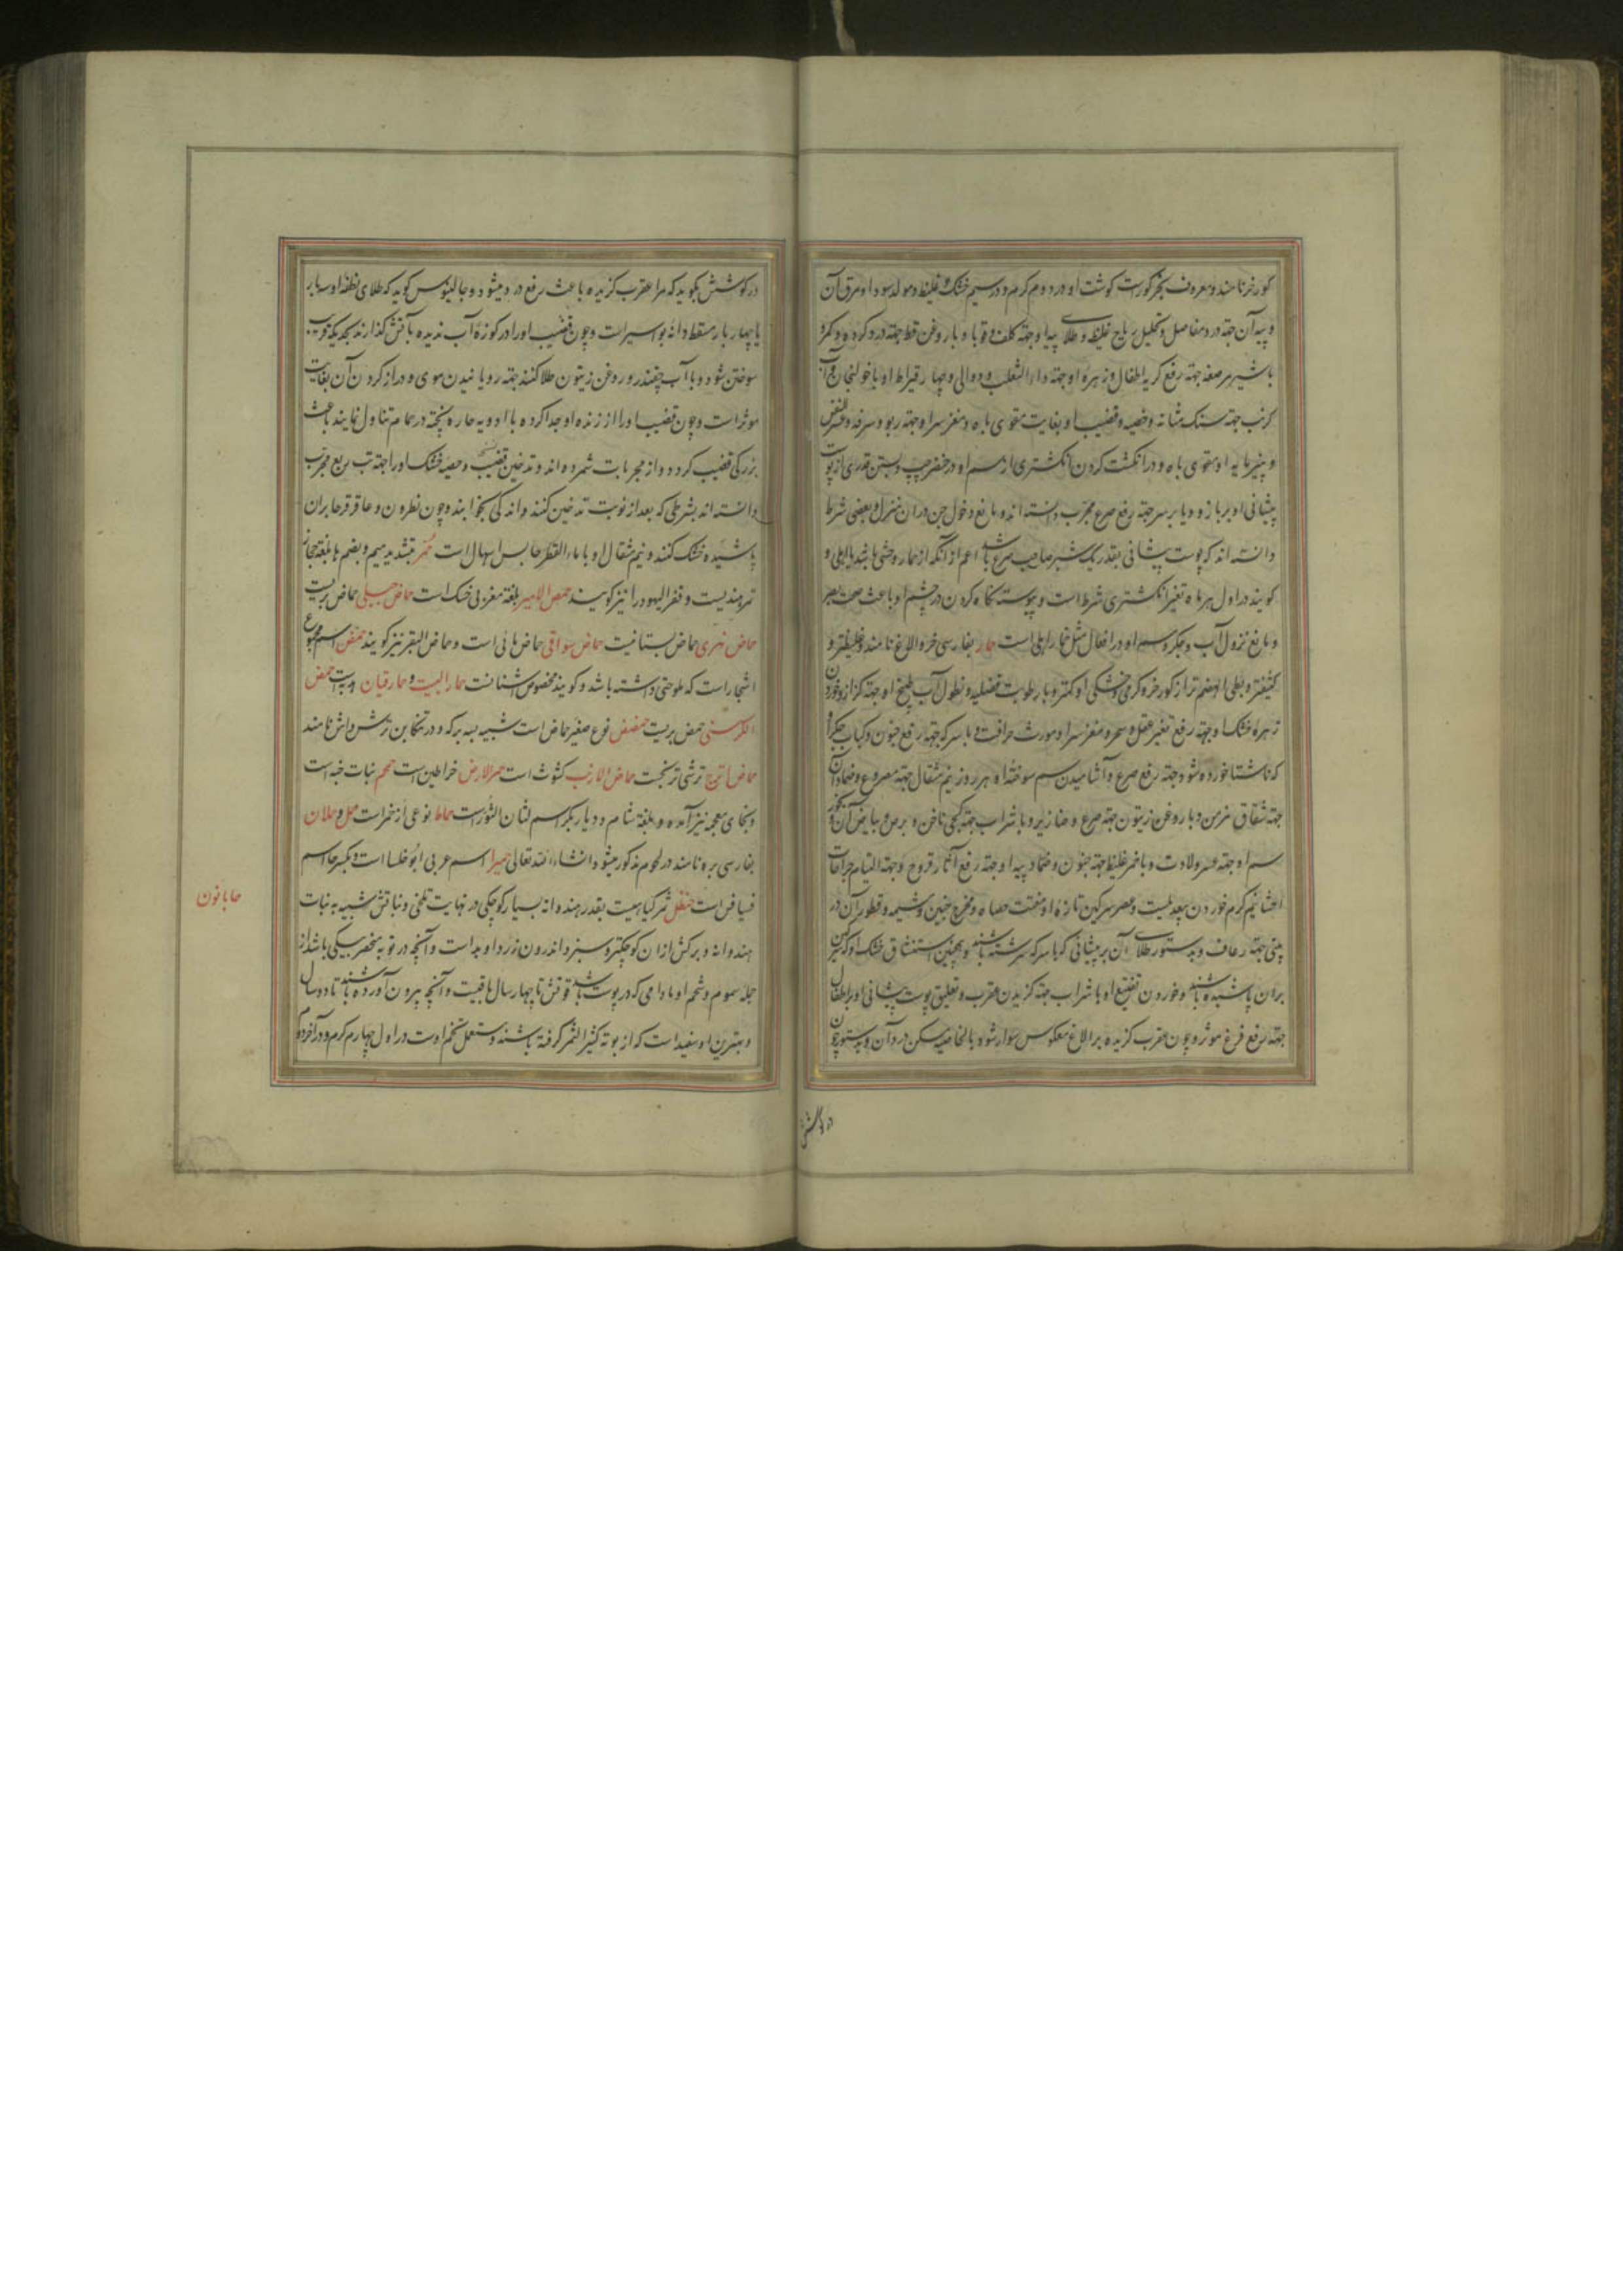 کورخر نامند و معروف بخر کور است کوشت او در دوم کرم و در سیم خشک و غلیظ و مولد سودا و مرق آن
و پیه آن جهته درد مفاصل و تحلیل ریاح غلیظه و طلای پیه او جهته کلف و قوبا و با روغن قط جهته درد کرده و کمر و
باشیر مرضعه جهته رفع کریه اطفال و زهره او جهته داء الثعلب و دوالی و چهار قیراط او با خولنجان و آب
کرفس جهته سنک مثانه و خصیه و قضیب او بغایت مقوی باه و مغز سر او جهته ربو و سرفه و عسر النفس
و پنیر مایه او مقوی باه و در انکشت کردن انکشتری از سم او در خنصر چپ و بستن قدری از پوست
پیشانی او بر بازو و یا بر سر جهته رفع صرع مجرب دانسته اند و مانع دخول جن در آن منزل و بعضی شرط
دانسته اند که پوست پیشانی بقدر یک شبر صاحب صرع باشد اعم از آنکه از حمار وحشی باشد یا اهلی و
کویند در اول هر ماه تغیر انکشتری شرط است و پیوسته نکاه کردن در چشم او باعث صحت بصر
و مانع نزول آب و جکر و سم او در افعال مثل حمار اهلی است حمار بفارسی خر و الاغ نامند و غلیظتر و
کثیفتر و بطی الهضم تر از کورخر و کرمی و خشکی او کمتر و با رطوبت فضلیه و نطول آب طبیخ او جهته کزاز و خوردن
زهره خشک او جهته رفع تغیر عقل و سحر و مغز سر او مورث خرافت و با سرکه جهته رفع جنون و کباب جکر او
که ناشتا خورده شود جهته رفع صرع و آشامیدن سم سوخته او هر روز نیم مثقال جهته مصروع و ضماد آن
جهته شقاق مزمن و با روغن زیتون جهته صرع و خنازیر و با شراب جهته کجی ناخن و برص و بیاض آن و بخور
سم او جهته عسر ولادت و با خمر غلیظ جهته جنون و ضماد پیه او جهته رفع آثار قروح و جهته التیام جراحات
احشا نیم کرم خوردن بیعدیلست و عصیر سرکین تازه او مفتت حصاة و مخرج جنین و مشیمه و قطور آن در
بینی جهته رعاف و بدستور طلای آن بر پیشانی که با سرکه سرشته باشند و همچنین استنشاق خشک او که سرکین
بر آن پاشیده باشند و خوردن نقیع او با شراب جهته کزیدن عقرب و تعلیق پوست پیشانی او بر اطفال
جهته رفع فزع موثر و چون عقرب کزیده بر الاغ معکوس سوار شود بالخاصیه مسکن درد آن و بدستور چون
در کوشش
در کوشش بکوید که مرا عقرب کزیده باعث رفع درد میشود و جالینوس کوید که طلای نطفه او سه بار
یا چهار بار مسقط دانه بواسیر است و چون قضیب او را در کوزه آب ندیده بآتش کذارند بحدیکه قریب
سوختن شود و با آب چغندر و روغن زیتون طلا کنند جهته رویانیدن موی و دراز کردن آن بغایت
موثر است و چون قضیب او را از زنده او جدا کرده با ادویه حاره پخته در حمام تناول نمایند باعث
بزرکی قضیب کردد و از مجربات شمرده اند و تدخین قضیب و خصیه خشک او را جهته تب ربع مجرب
دانسته اند بشرطی که بعد از نوبت تدخین کنند و اندکی بخوابند و چون نطرون و عاقرقرحا بر آن
پاشیده خشک کنند و نیم مثقال او با ماء القطر حابس اسهال است حمر بتشدید میم و بضم ها بلغة حجاز
تمرهندیست و قفر الیهود را نیز کویند حمص الامیر بلغة مغربی خسک است حماض جبلی حماض بریست
حماض نهری حماض بستانیست حماض سواقی حماض مائی است و حماض البقر نیز کویند حمض اسم مجموع
اشجار است که ملوحتی داشته باشد و کویند مخصوص اشنانست حمار البیت و حمار قبان هدبه است حمص
الکرسنی حمص بریست حمضیض نوع صغیر حماض است شبیه بسه برکه و در تنکابن ترش واش نامند
حماض اترج ترشی ترنجست حماض الارنب کثوث است حمر الارض خراطین است حمحم نبات خبه است
و بخای معجمه نیز آمده و بلغة شام و دیار بکر اسم لسان الثور است حماط نوعی از خمر است حمل و حملان
بفارسی بره نامند در لحوم مذکور میشود انشاء الله تعالی حمیرا اسم عربی ابوخلسا است و بکسر حا اسم
فسافس است حنظل ثمر کیاهیست بقدر هندوانه بسیار کوچکی در نهایت تلخی و نباتش شبیه به نبات
هندوانه و برکش از آن کوچکتر و سبز و اندرون زرد او بد است و آنچه در قوبه منحصر بیکی باشد از
جمله سموم و شحم او مادامی که در پوست باشد قوتش تا چهار سال باقیست و آنچه بیرون آورده باشند تا دو سال
و بهترین او سفید است که از بوته کثیر الثمر کرفته باشند و مستعمل شحم اوست در اول چهارم کرم و در آخر دوم
حابانون